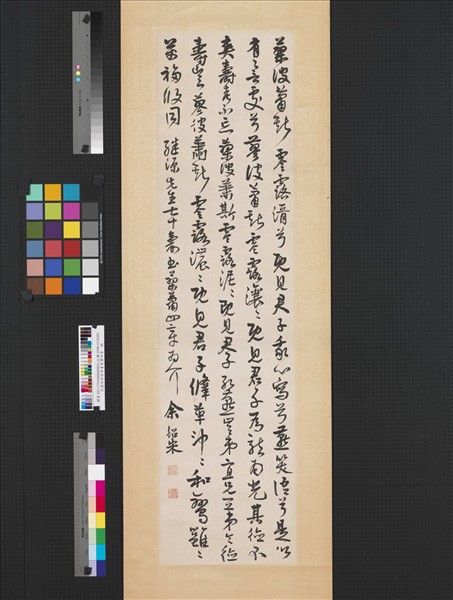 蓼彼蕭斯零露湑兮既見君子我心寫兮燕笑語兮是以
有譽處兮蓼彼蕭斯零露瀼〻既見君子為龍為光其德不
爽壽考不忘蓼彼蕭斯零露泥〻既見君子孔燕豈弟宜兄宜弟令德
壽豈蓼彼蕭斯零露濃〻既見君子鞗革沖〻和鸞雝〻
萬福攸同 先生七十壽書蓼蕭四章為介 余紹宋